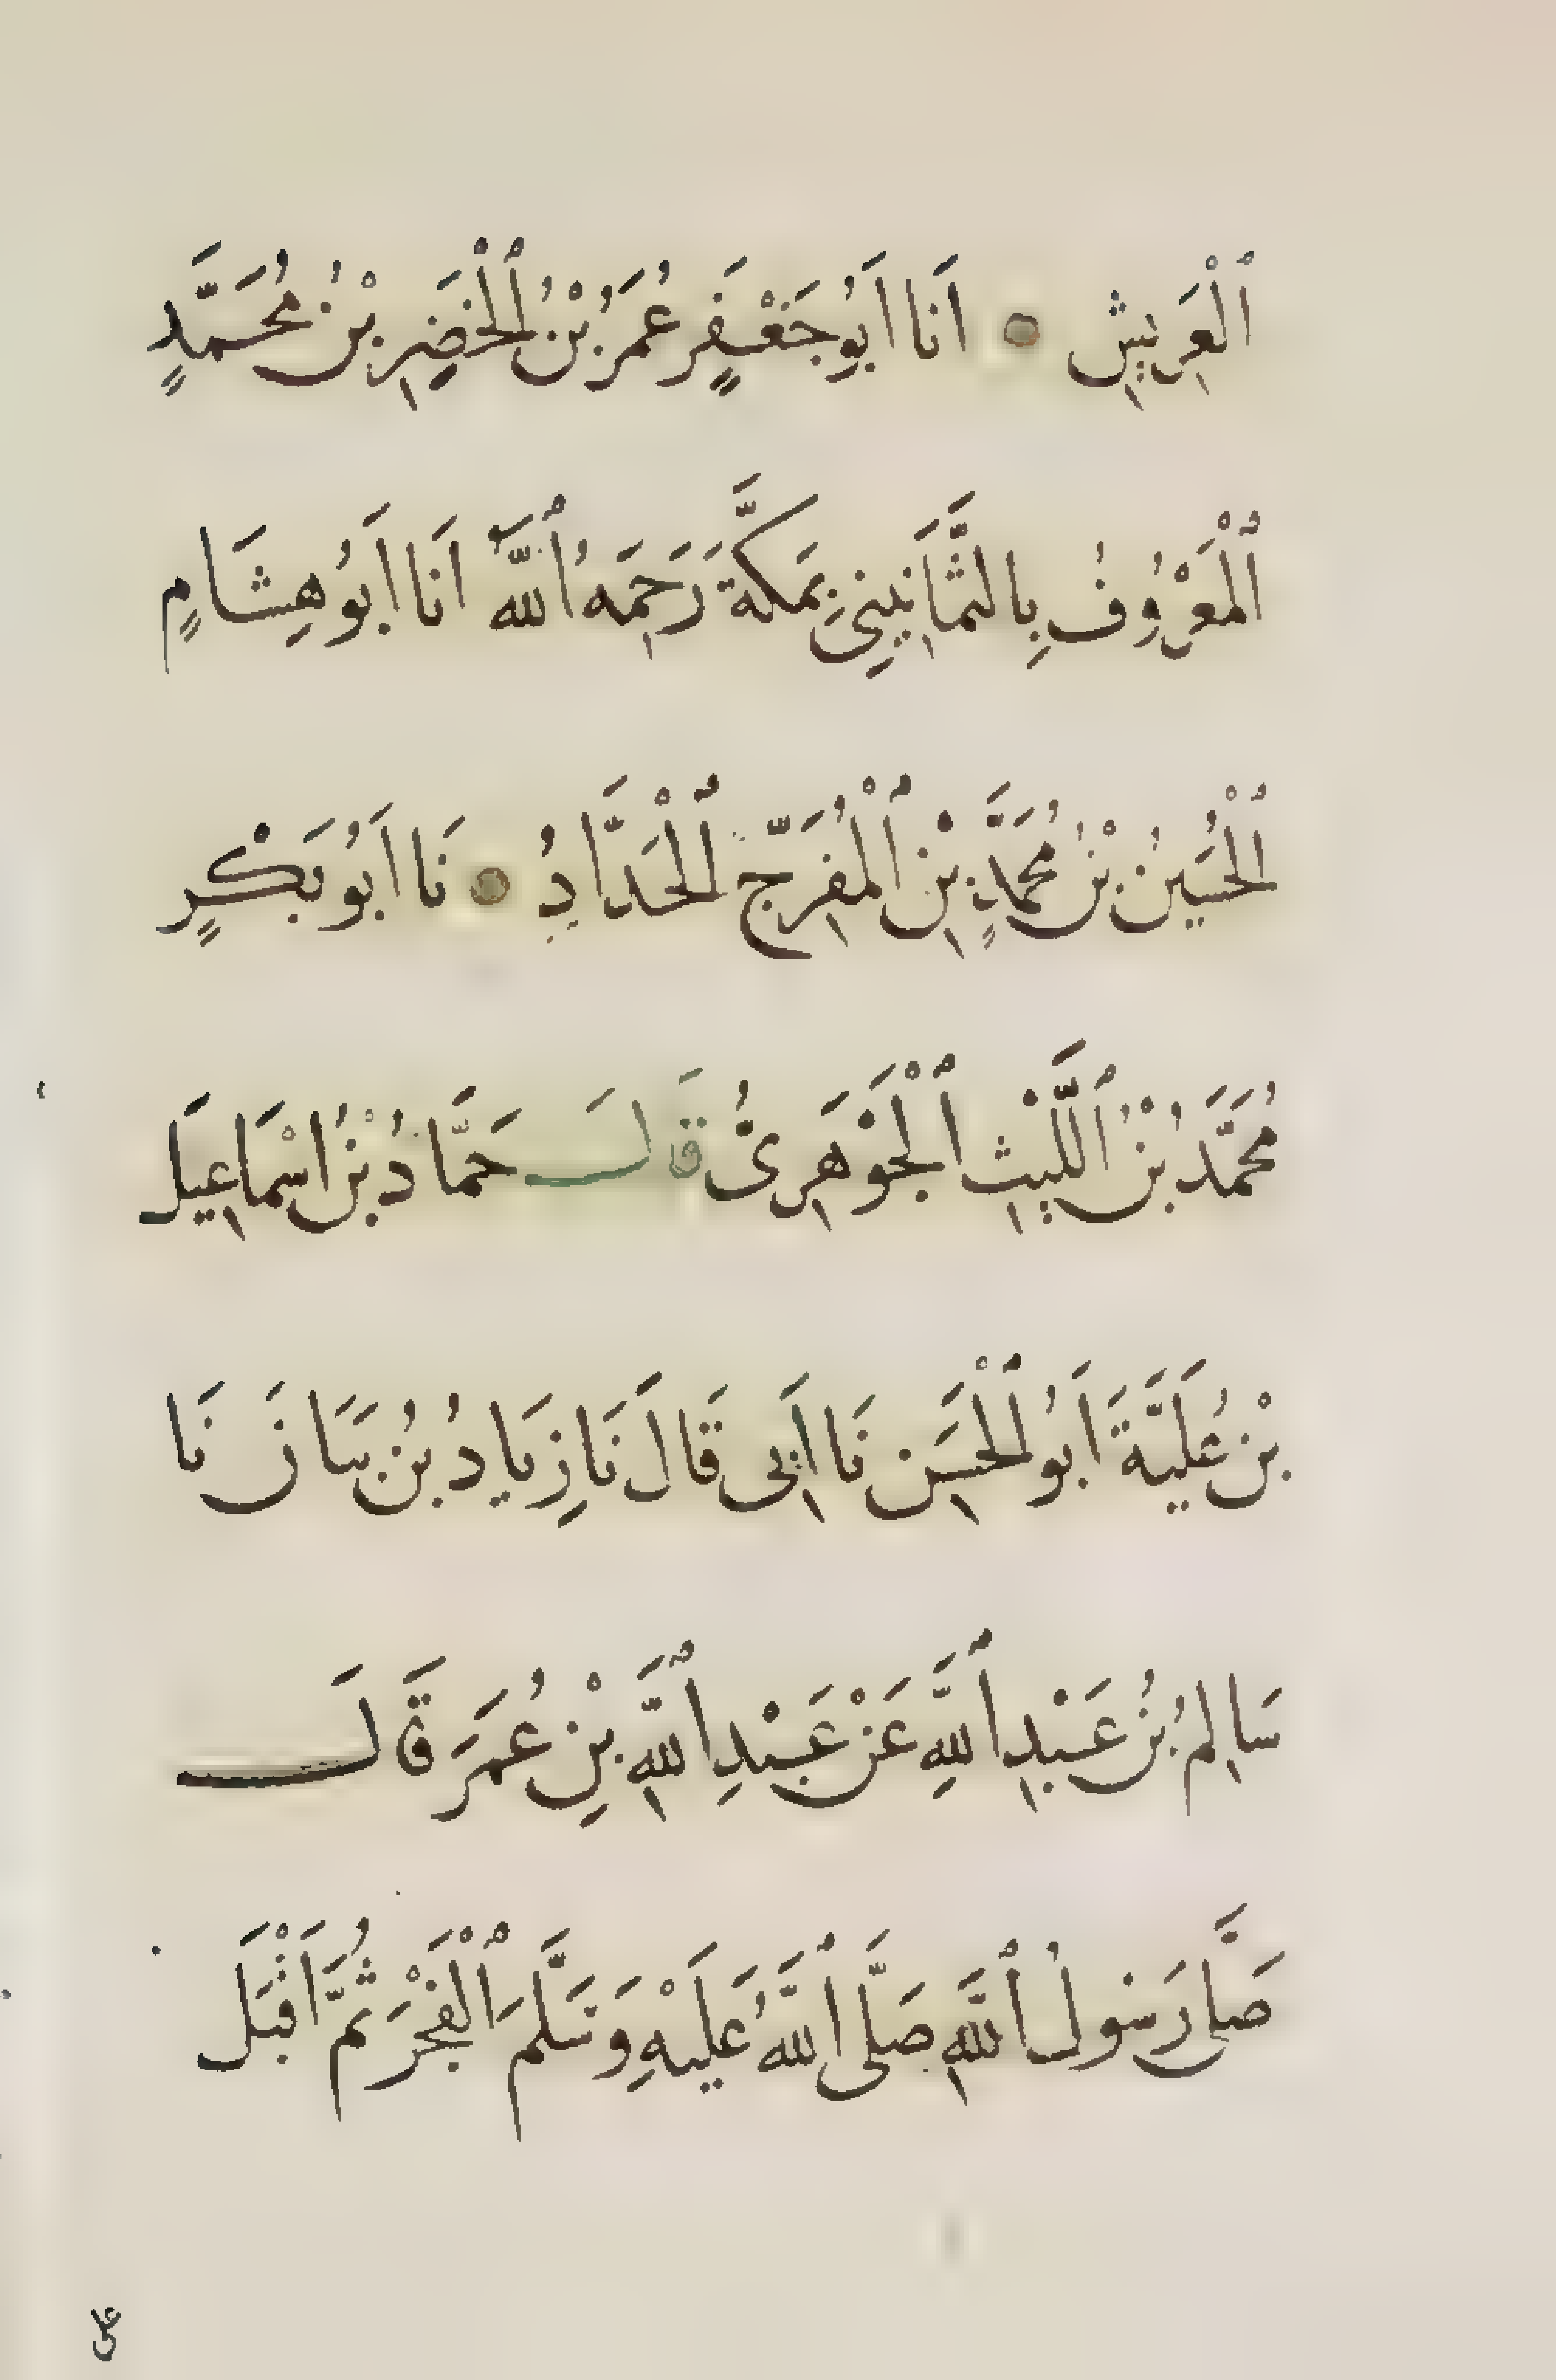 ٱلْعَرِيشِ ۝ اَنَا اَبُو جَعْفَرٍ عُمَرُ بْنُ ٱلْخَضِرِ بْنُ مُحَمَّدٍ
ٱلْمَعْرُوفُ بِالثَّمَانِينِىِّ بِمَكَّةَ رَحِمَهُ ٱللَّهُ اَنَا اَبُو هِشَامٍ
ٱلْحُسَيْنُ بْنُ مُحَمَّدٍ بْنِ ٱلْمُفَرَّجِ ٱلْحَدَّادُ ۝ نَا اَبُو بَكْرٍ
مُحَمَّدُ بْنُ ٱللَّيْثِ ٱلْجَوْهَرِىُّ قَالَ حَمَّادُ بْنُ اِسْمَاعِيلَ
بْنِ عُلَيَّةَ اَبُو ٱلْحَسَنِ نَا اَبِى قَالَ نَا زِيَادُ بْنُ بَيَانَ نَا
سَالِمُ بْنُ عَبْدِ ٱللَّهِ عَنْ عَبْدِ ٱللَّهِ بْنِ عُمَرَ قَالَ
صَلَّى رَسُولُ ٱللَّهِ صَلَّى ٱللَّهُ عَلَيْهِ وَسَلَّمَ ٱلْفَجْرَ ثُمَّ اَقْبَلَ
على